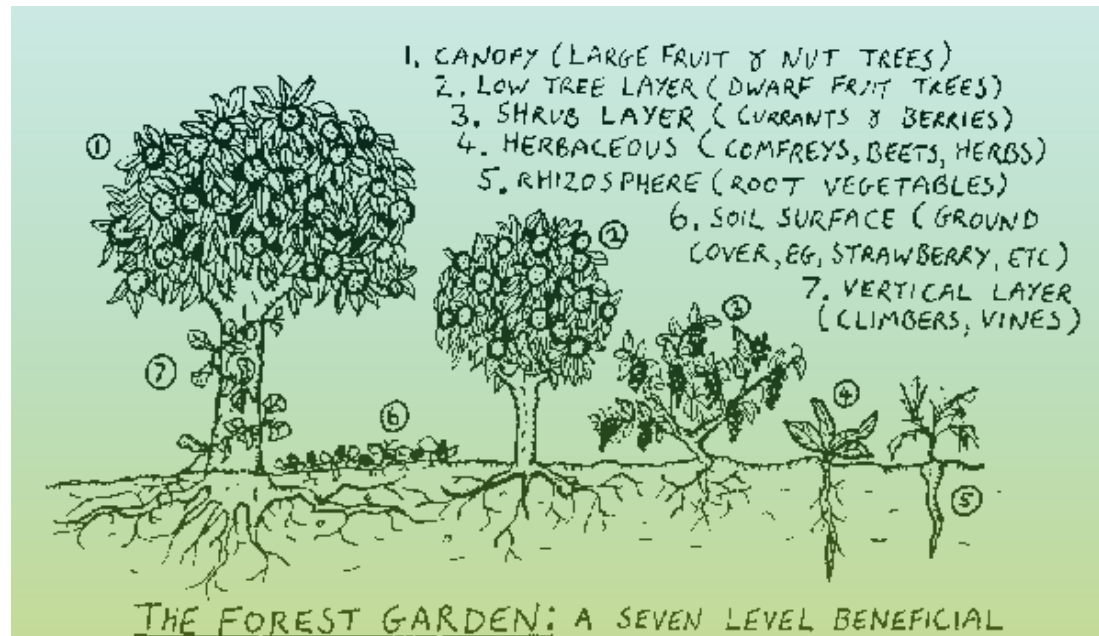 1. CANOPY (LARGE FRUIT & NUT TREES)
2. LOW TREE LAYER (DWARF FRUIT TREES)
3. SHRUB LAYER (CURRANTS & BERRIES)
4. HERBACEOUS (COMFREYS, BEETS, HERBS)
5. RHIZOSPHERE (ROOT VEGETABLES)
6. SOIL SURFACE (GROUND
COVER, EG, STRAWBERRY, ETC)
7. VERTICAL LAYER
(CLIMBERS, VINES)
1
2
3
7
6
4
5
THE FOREST GARDEN: A SEVEN LEVEL BENEFICIAL